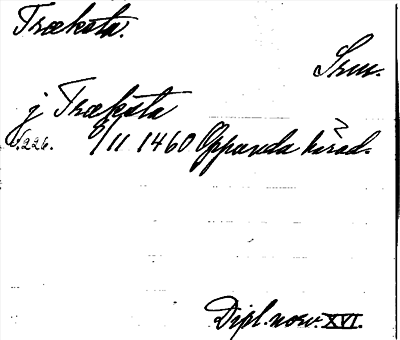 Træksta.
Srm.
j Træksta
s. 226. 9/11 1460 Oppunda härad.
Dipl. norv. XVI.